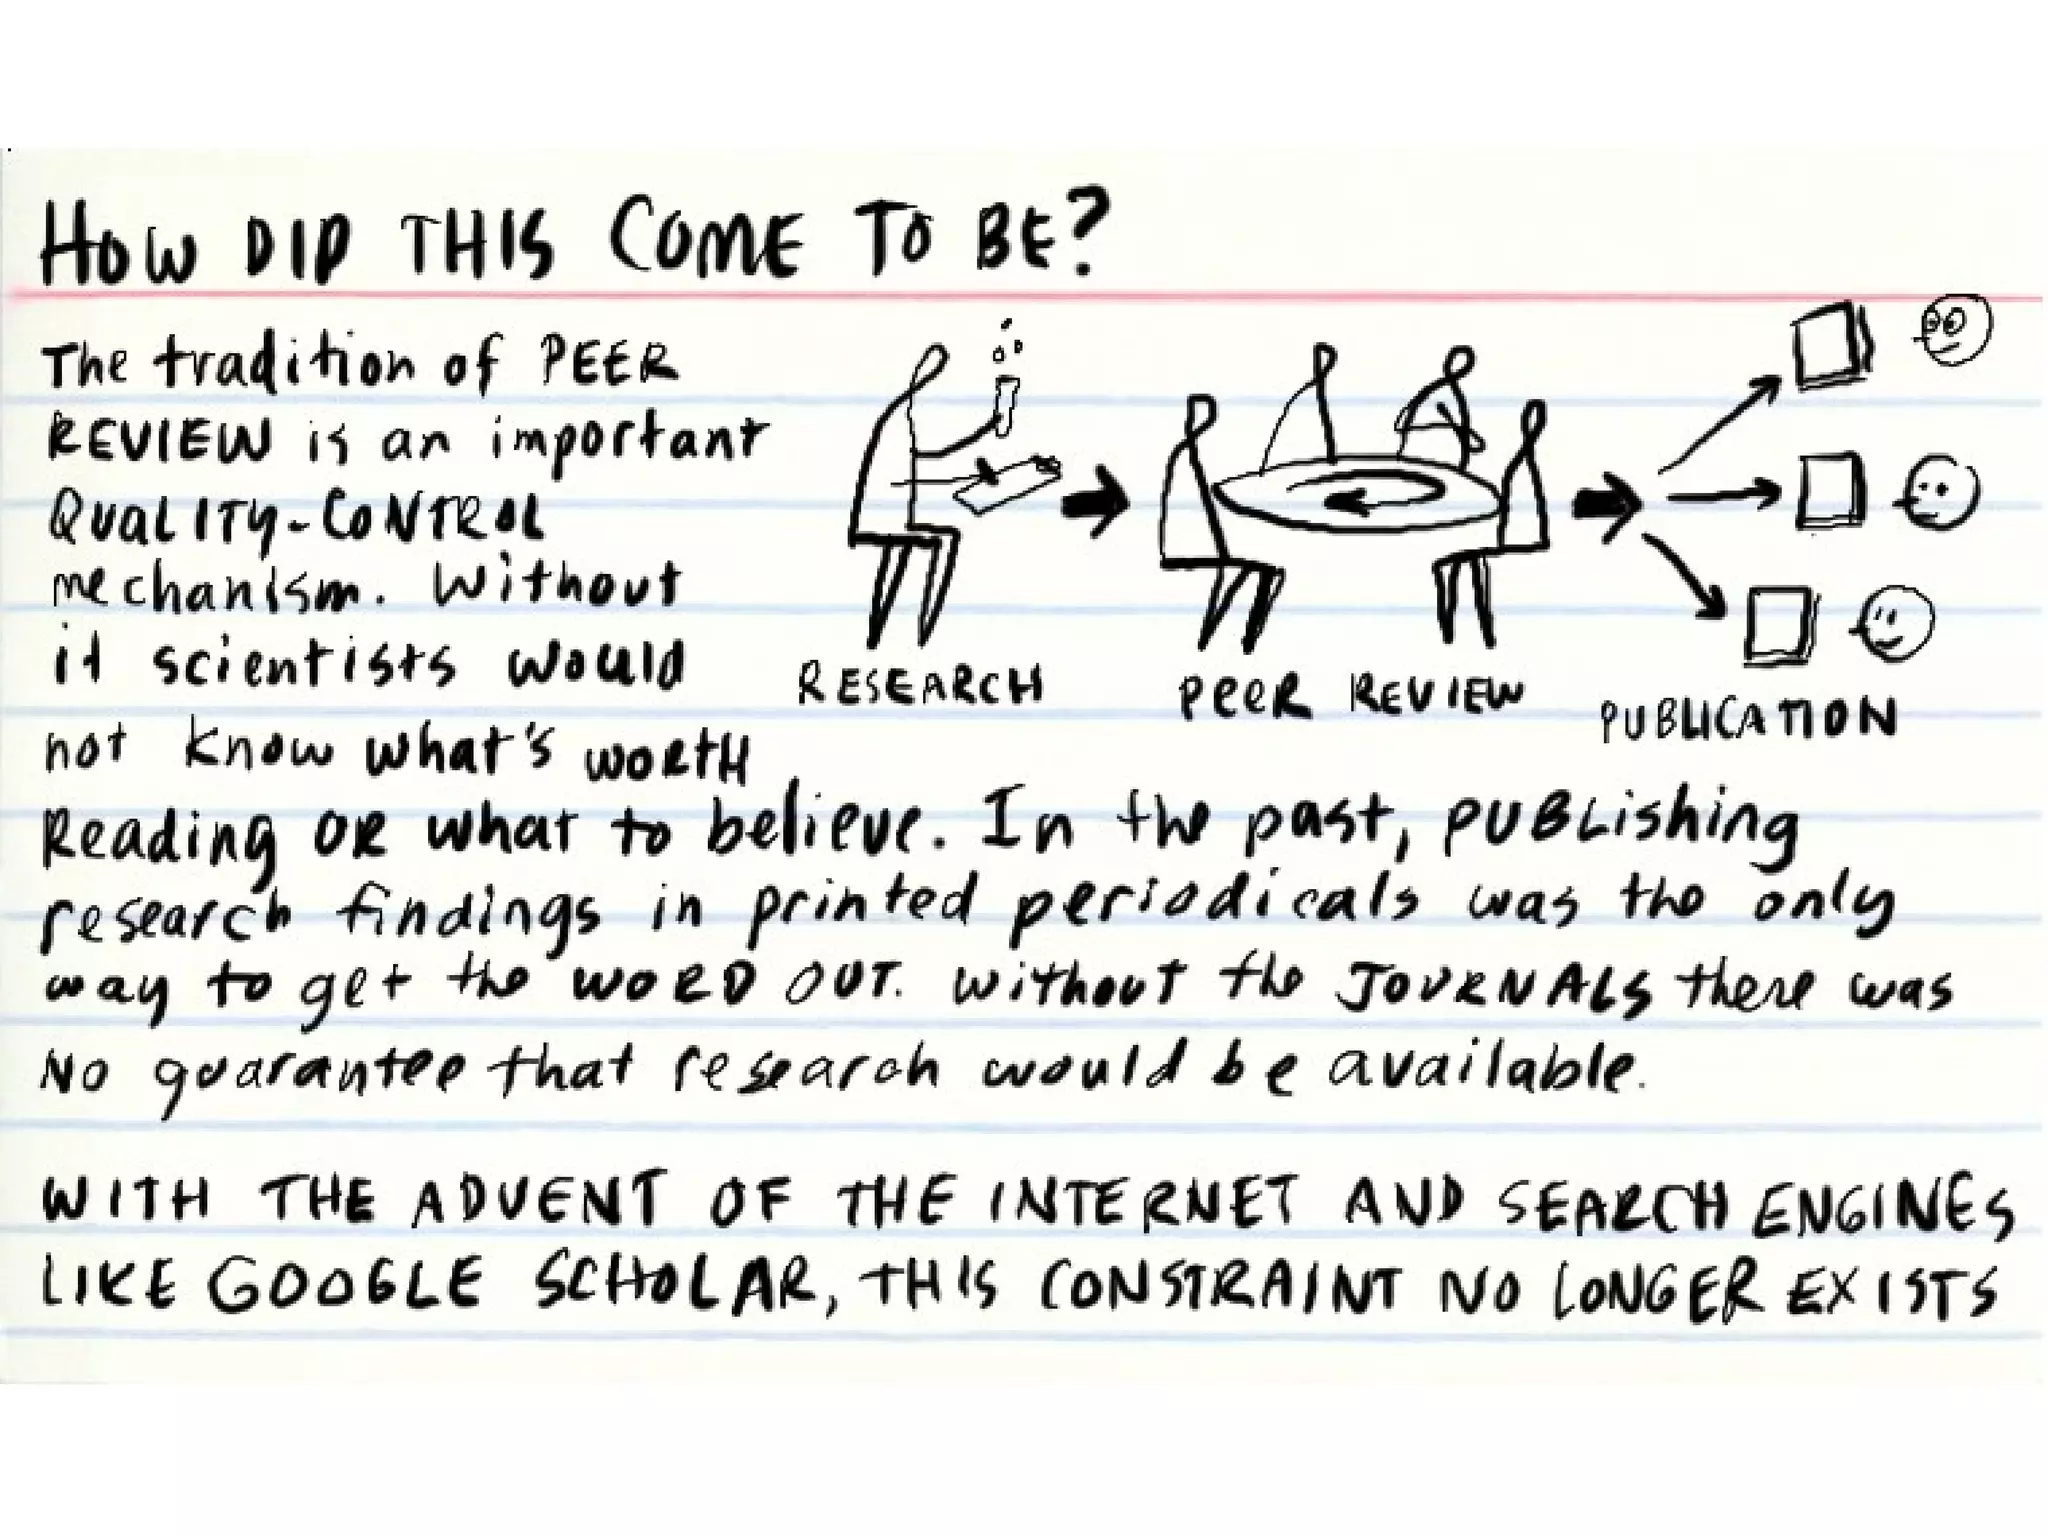 HOW DID THIS COME TO BE?
The tradition of PEER
REVIEW is an important
QUALITY-CONTROL
mechanism. Without
it scientists would
not know what's WORTH
Reading OR what to believe. In the past, PUBLishing
research findings in printed periodicals was the only
way to get the WORD OUT. Without the JOURNALS there was
NO guarantee that research would be available.
RESEARCH
PEER REVIEW
PUBLICATION
WITH THE ADVENT OF THE INTERNET AND SEARCH ENGINES
LIKE GOOGLE SCHOLAR, THIS CONSTRAINT NO LONGER EXISTS